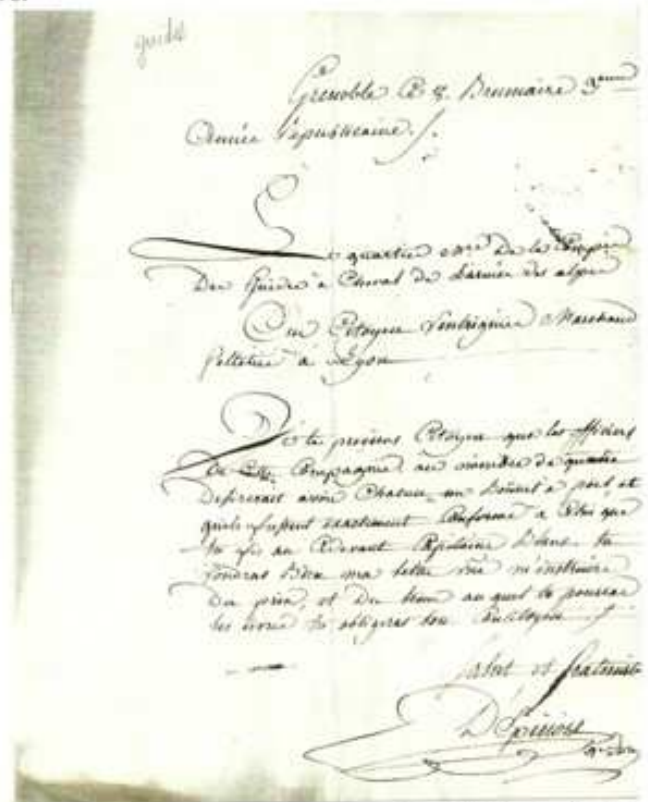 guides
Grenoble Ce 8. Brumaire 3eme
Année Republicaine ./.
Le quartier Mre De la Compie
Des Guides à Cheval de Larmée des alpes
Au Citoyen Marchand
Pelletier à Lyon
Je te préviens Citoyen que les officiers
De Compagnie au nombre de quatre
Desirerait avoir Chacun un Bonnet à poil et
quils fussent exactement Conforme a Celui que
tu as au Cidevant Capitaine tu
voudras Bien ma lettre m'instruire
Du prix, et Du tems auquel tu pourras
les tu obligeras ton Concitoyen
Salut et fraternité
D'Epinois